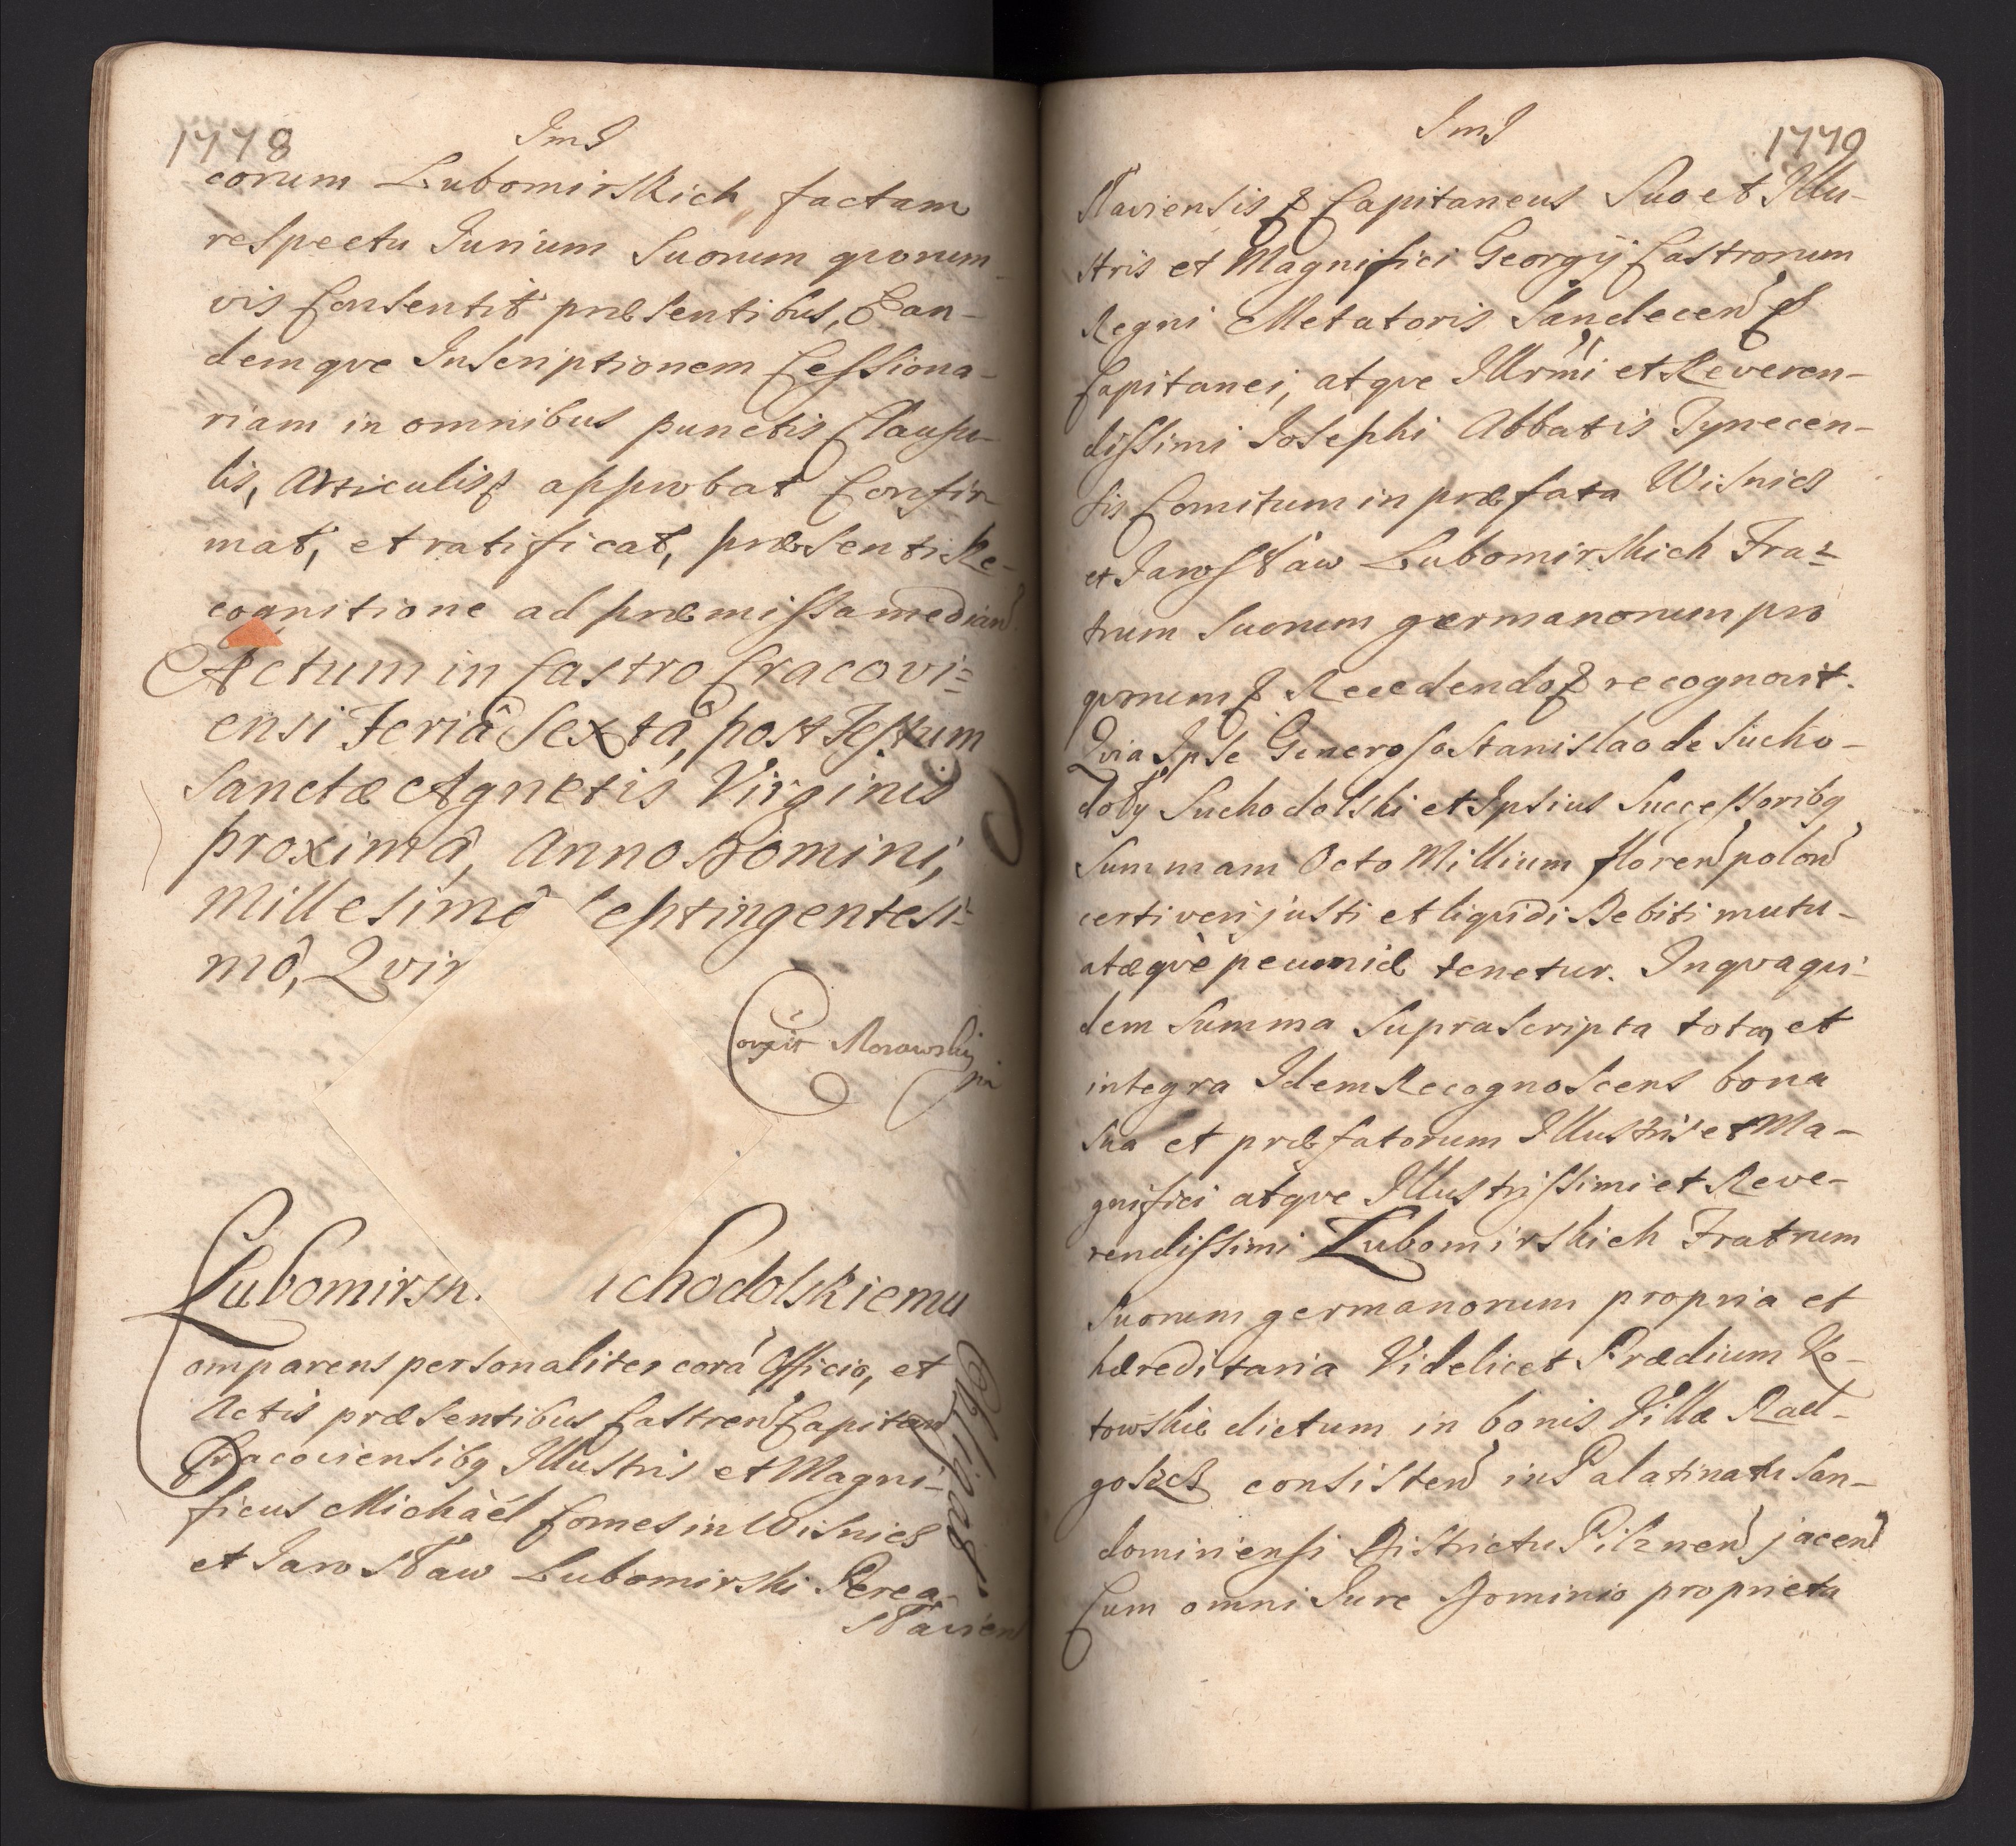 1778
ImJ
corum Lubomirskich, factam
respectu Jurium Suorum quorum-
vis Consentit præsentibus, Ean-
demque Inscriptionem Cessiona-
riam in omnibus punctis Clausu-
lis, Articulisq approbat Confir-
mat, et ratificat, præsenti Re-
cognitione ad præmissa median
Actum in Castro Cracovi=
ensi Feriâ Sextâ, post Festum
Sanctæ Agnetis Virginis
proximâ, Anno Domini,
Millesimô Septingentesi-
mô, Qvin
Corexit Morawski
Lubomirsk. chodolskiemu
Comparens personaliter corã Officio, et
Actis præsentibus Castren Capitan
Cracoviensibq Illustris et Magni-
ficus Michaël Comes in Wisnicz
et Jarosław Lubomirski Perea-
sławien
Obligat.
ImJ
1779
sławiensis & Capitaneus Suo et Illu-
stris et Magnifici Georgij Castrorum
Regni Metatoris Sandecen &
Capitanei, atqve Illrmi et Reveren-
dissimi Josephi Abbatis Tynecen-
sis Comitum in præfata Wisnicz
et Jarosław Lubomirskich Fra-
trum Suorum germanorum pro
quorum & Recedendo & recognovit.
Qvia Ipse Generoso Stanislao de Sucho-
doły Suchodolski et Ipsius Successoribq
Summam Octo Millium floren polon
certi veri justi et liquidi Debiti mutu-
atæqvè pecuniæ tenetur. In qva qui-
dem Summa Suprascripta tota, et
integra Idem Recognoscens bona
Sua et præfatorum Illustris et Ma-
gnifici atqve Illustrissimi et Reve-
rendissimi Lubomirskich Fratrum
Suorum germanorum propria et
hæreditaria Videlicet Prædium Ko-
towskie dictum in bonis Villæ Rad-
goszcz consisten in Palatinatu San-
domiriensi Districtu Pilznen jacen
Cum omni Jure Dominio proprieta